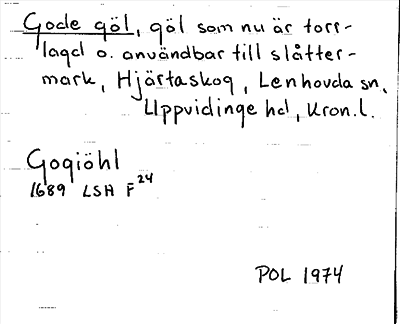 Gode göl, göl som nu är torr-
lagd o. användbar till slåtter-
mark, Hjärtaskog, Lenhovda sn,
Uppvidinge hd, Kron.l.
Gogiöhl
1689 LSH F 24
POL 1974